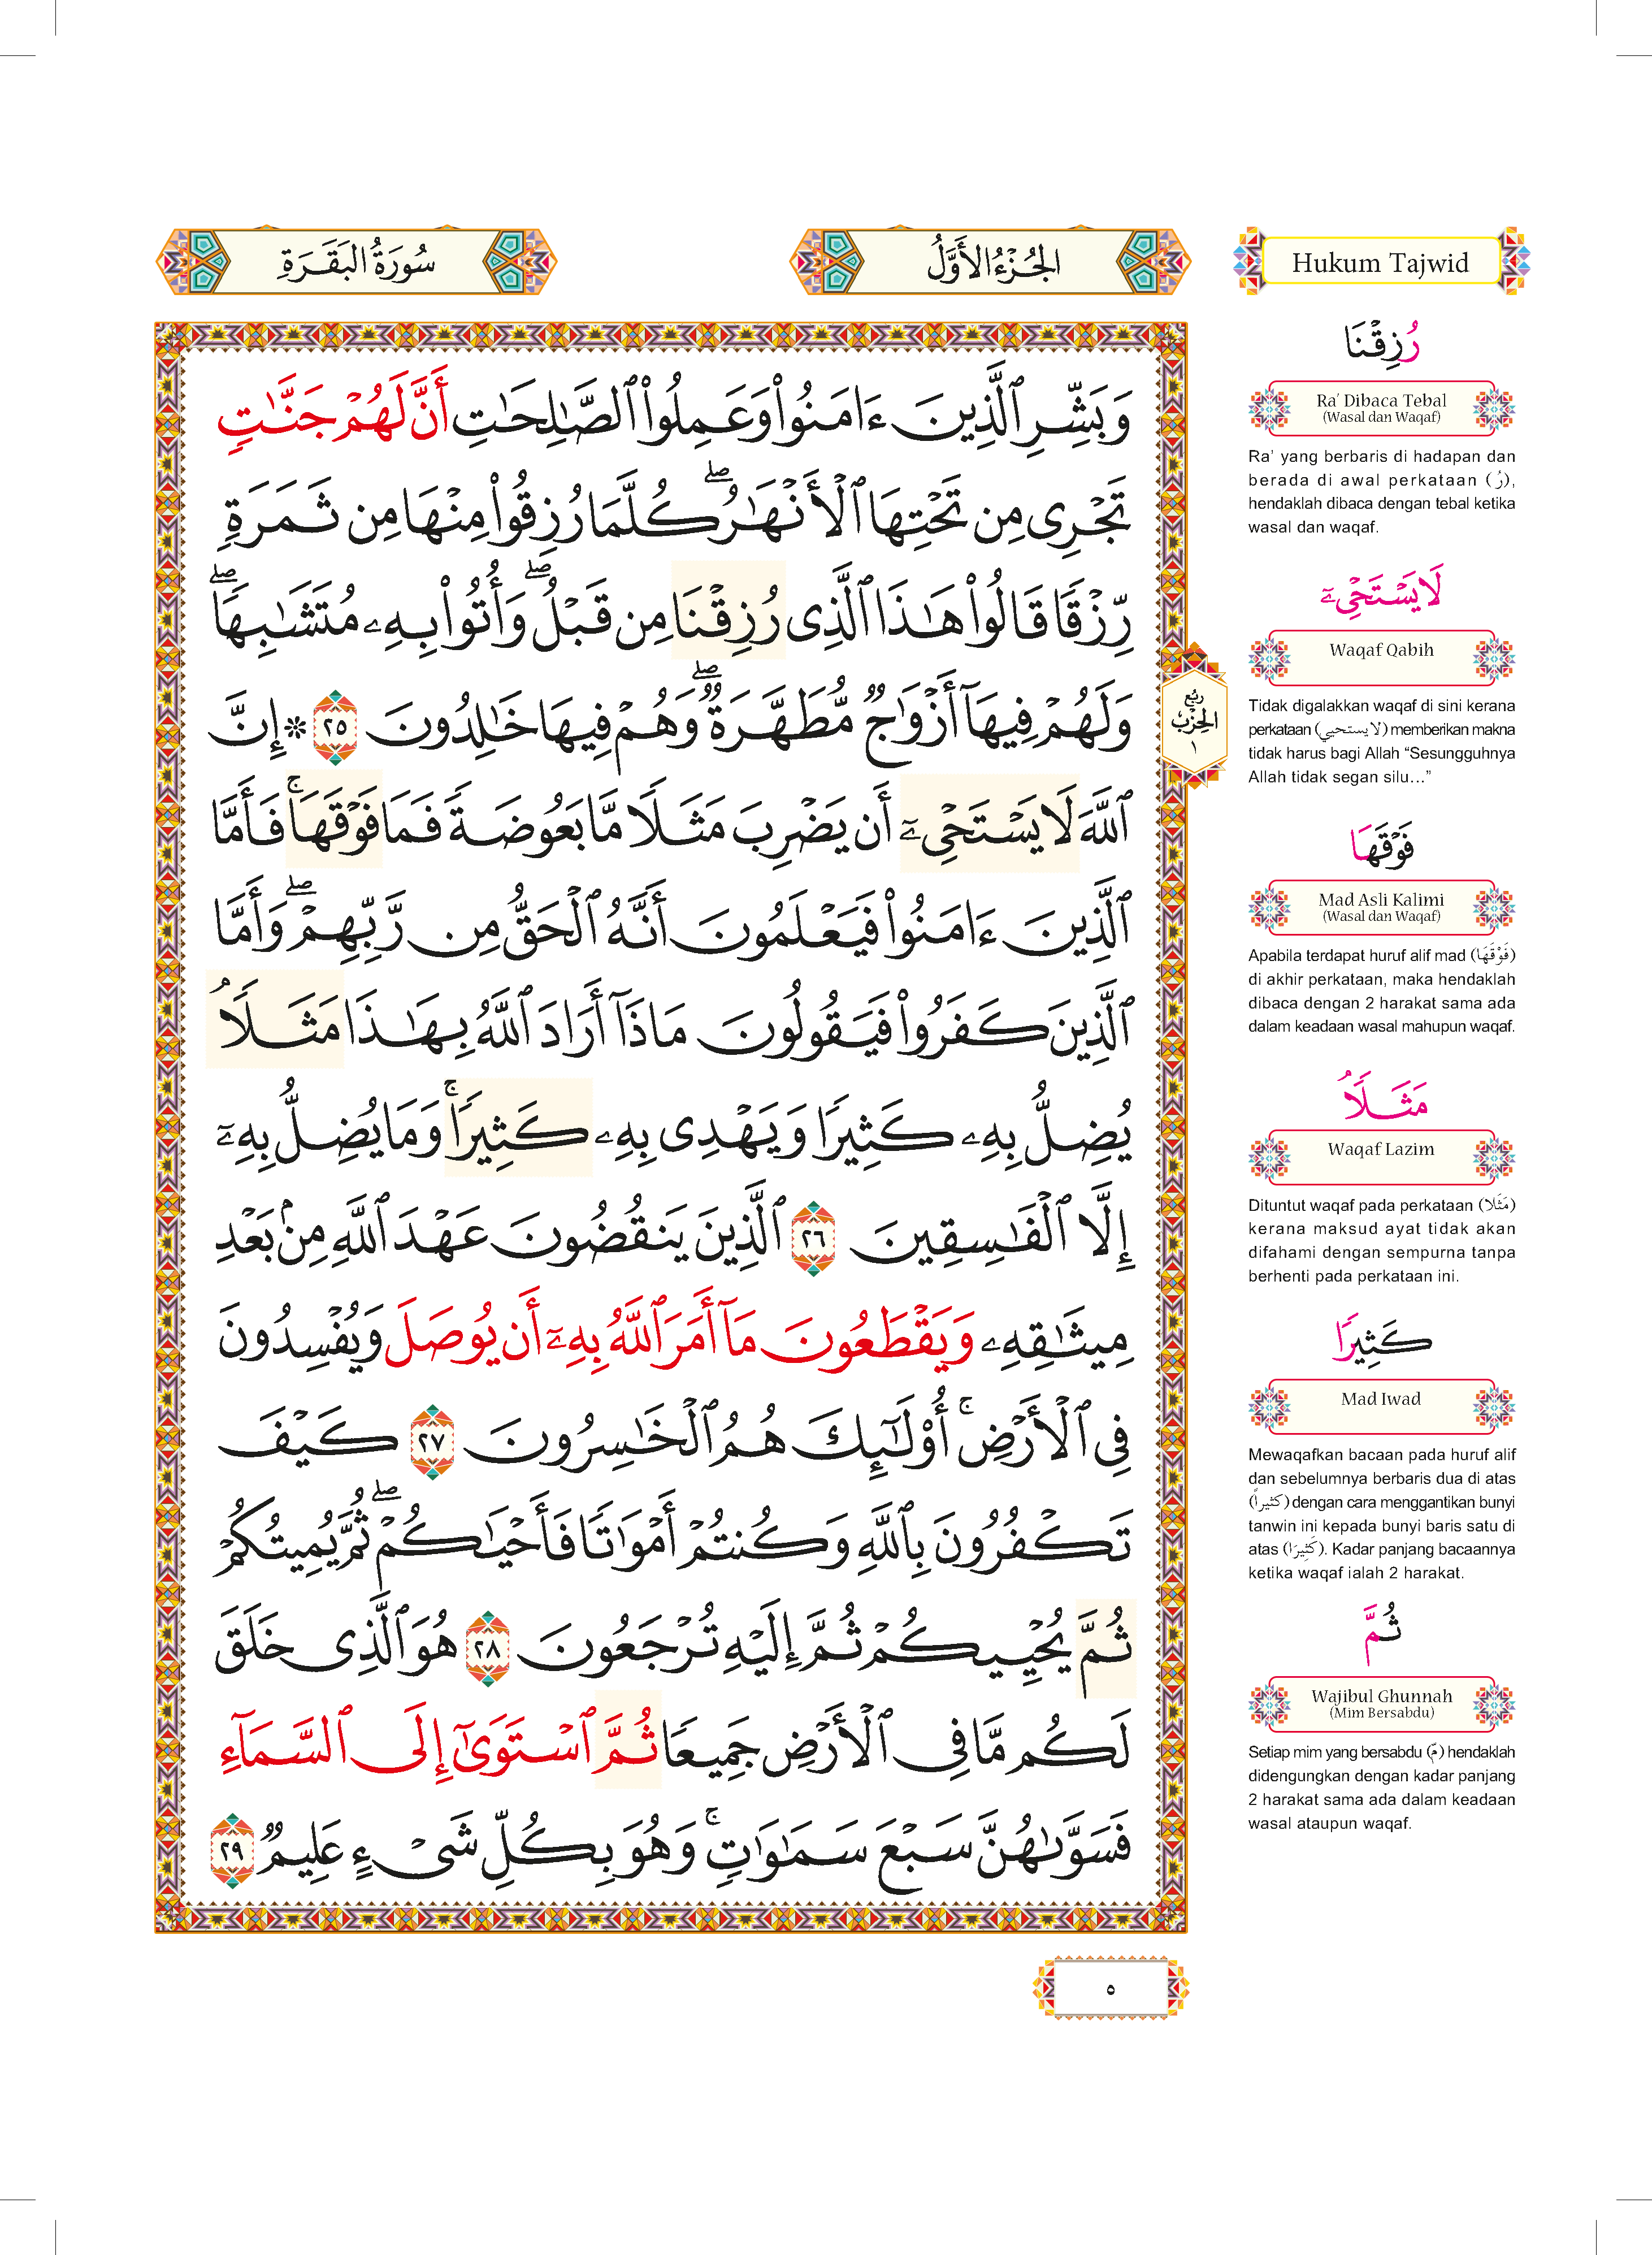 سُورَةُ البَقَرَةِ
الجُزْءُ الأَوَّلُ
Hukum Tajwid
وَبَشِّرِ ٱلَّذِينَ ءَامَنُوا۟ وَعَمِلُوا۟ ٱلصَّٰلِحَٰتِ أَنَّ لَهُمْ جَنَّٰتٍ
تَجْرِى مِن تَحْتِهَا ٱلْأَنْهَٰرُ ۖ كُلَّمَا رُزِقُوا۟ مِنْهَا مِن ثَمَرَةٍ
رِّزْقًا قَالُوا۟ هَٰذَا ٱلَّذِى رُزِقْنَا مِن قَبْلُ ۖ وَأُتُوا۟ بِهِۦ مُتَشَٰبِهًا ۖ
وَلَهُمْ فِيهَآ أَزْوَٰجٌ مُّطَهَّرَةٌ ۖ وَهُمْ فِيهَا خَٰلِدُونَ ٢٥ ۞ إِنَّ
ٱللَّهَ لَا يَسْتَحْىِۦٓ أَن يَضْرِبَ مَثَلًا مَّا بَعُوضَةً فَمَا فَوْقَهَا ۚ فَأَمَّا
ٱلَّذِينَ ءَامَنُوا۟ فَيَعْلَمُونَ أَنَّهُ ٱلْحَقُّ مِن رَّبِّهِمْ ۖ وَأَمَّا
ٱلَّذِينَ كَفَرُوا۟ فَيَقُولُونَ مَاذَآ أَرَادَ ٱللَّهُ بِهَٰذَا مَثَلًا ۘ
يُضِلُّ بِهِۦ كَثِيرًا وَيَهْدِى بِهِۦ كَثِيرًا ۚ وَمَا يُضِلُّ بِهِۦٓ
إِلَّا ٱلْفَٰسِقِينَ ٢٦ ٱلَّذِينَ يَنقُضُونَ عَهْدَ ٱللَّهِ مِنۢ بَعْدِ
مِيثَٰقِهِۦ وَيَقْطَعُونَ مَآ أَمَرَ ٱللَّهُ بِهِۦٓ أَن يُوصَلَ وَيُفْسِدُونَ
فِى ٱلْأَرْضِ ۚ أُو۟لَٰٓئِكَ هُمُ ٱلْخَٰسِرُونَ ٢٧ كَيْفَ
تَكْفُرُونَ بِٱللَّهِ وَكُنتُمْ أَمْوَٰتًا فَأَحْيَٰكُمْ ۖ ثُمَّ يُمِيتُكُمْ
ثُمَّ يُحْيِيكُمْ ثُمَّ إِلَيْهِ تُرْجَعُونَ ٢٨ هُوَ ٱلَّذِى خَلَقَ
لَكُم مَّا فِى ٱلْأَرْضِ جَمِيعًا ثُمَّ ٱسْتَوَىٰٓ إِلَى ٱلسَّمَآءِ
فَسَوَّىٰهُنَّ سَبْعَ سَمَٰوَٰتٍ ۚ وَهُوَ بِكُلِّ شَىْءٍ عَلِيمٌ ٢٩
ربع
الحزب
١
رُزِقْنَا
Ra' Dibaca Tebal
(Wasal dan Waqaf)
Ra' yang berbaris di hadapan dan
berada di awal perkataan (رُ),
hendaklah dibaca dengan tebal ketika
wasal dan waqaf.
لَا يَسْتَحْىِۦٓ
Waqaf Qabih
Tidak digalakkan waqaf di sini kerana
perkataan (لا يستحيي) memberikan makna
tidak harus bagi Allah “Sesungguhnya
Allah tidak segan silu…”
فَوْقَهَا
Mad Asli Kalimi
(Wasal dan Waqaf)
Apabila terdapat huruf alif mad (فَوْقَهَا)
di akhir perkataan, maka hendaklah
dibaca dengan 2 harakat sama ada
dalam keadaan wasal mahupun waqaf.
مَثَلًا ۘ
Waqaf Lazim
Dituntut waqaf pada perkataan (مَثَلا)
kerana maksud ayat tidak akan
difahami dengan sempurna tanpa
berhenti pada perkataan ini.
كَثِيرًا
Mad Iwad
Mewaqafkan bacaan pada huruf alif
dan sebelumnya berbaris dua di atas
(كثيراً) dengan cara menggantikan bunyi
tanwin ini kepada bunyi baris satu di
atas (كَثِيرَا). Kadar panjang bacaannya
ketika waqaf ialah 2 harakat.
ثُمَّ
Wajibul Ghunnah
(Mim Bersabdu)
Setiap mim yang bersabdu (مّ) hendaklah
didengungkan dengan kadar panjang
2 harakat sama ada dalam keadaan
wasal ataupun waqaf.
٥